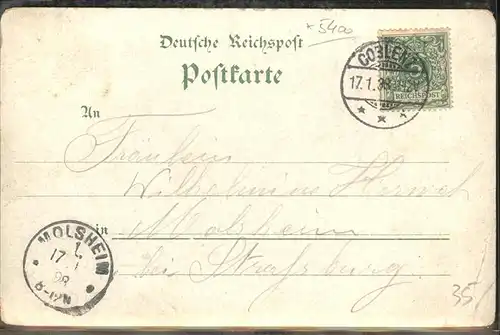 *5400
Deutsche Reichspost
Postkarte
COBLENZ
17.1.98
REICHSPOST
An
Fräulein
Wilhelmine
in Molsheim
bei Straßburg
MOLSHEIM
17
1
98
8-12N
35